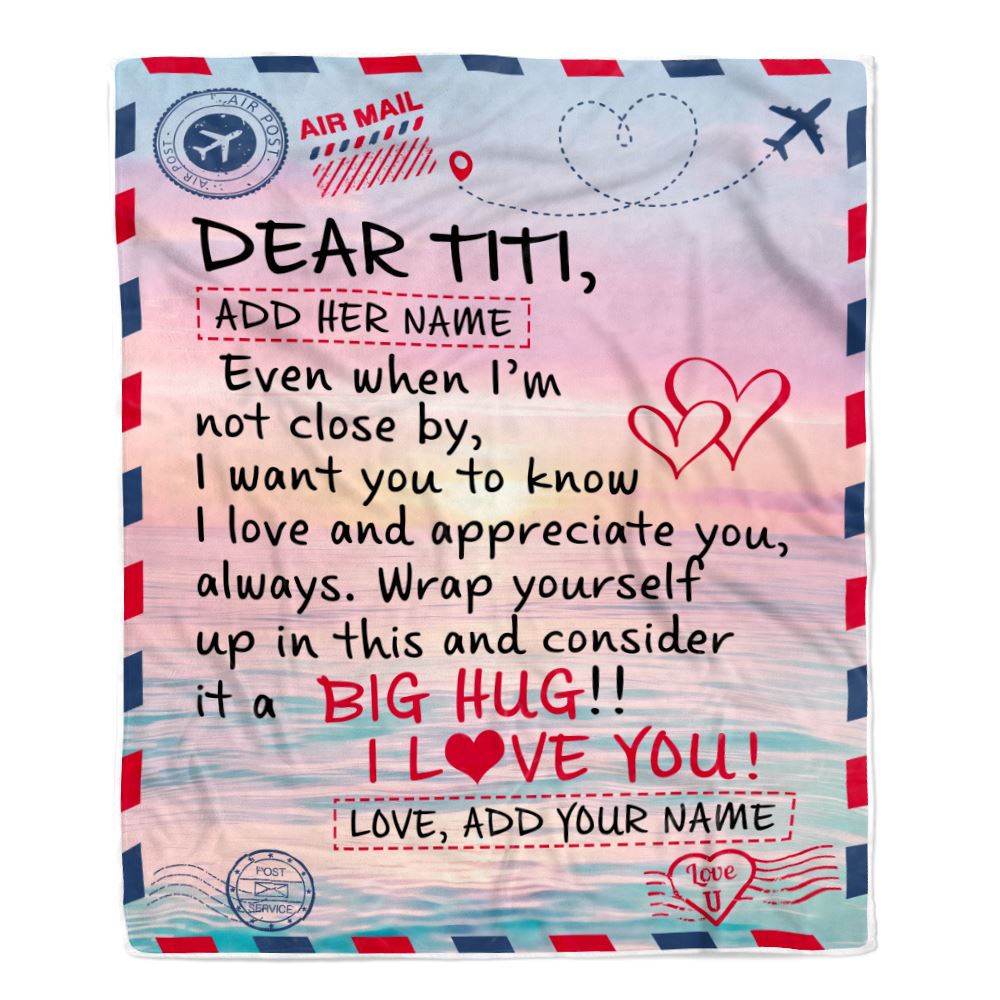 AIR POST
AIR POST
AIR POST
AIR MAIL
DEAR TITI,
ADD HER NAME
Even when I'm
not close by,
I want you to know
I love and appreciate you,
always. Wrap yourself
up in this and consider
it a BIG HUG!!
I L❤VE YOU!
LOVE, ADD YOUR NAME
POST
SERVICE
Love
U